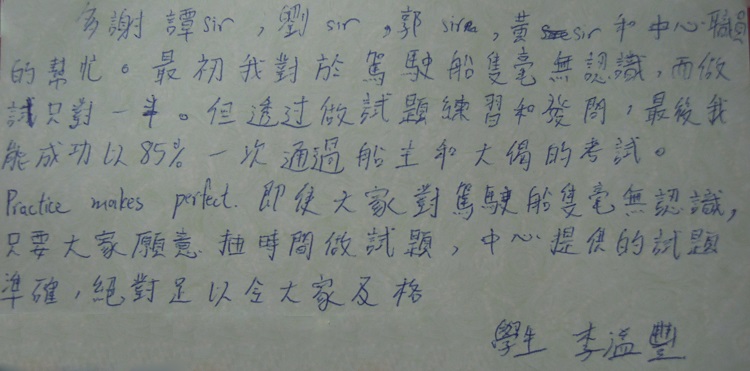 多謝 譚sir , 劉 sir , 郭 sir , 黃 sir 和 中心 職員
的幫忙。最初我對於駕駛船隻毫無認識,而做
試只對一半。但透过做試題練習和發問,最後我
能成功以85% 一次通過船主和大偈的考試。
Practice makes perfect. 即使大家對駕駛船隻毫無認識,
只要大家願意抽時間做試題,中心提供的試題
準確,絕對足以令大家及格
學生 李溢豐